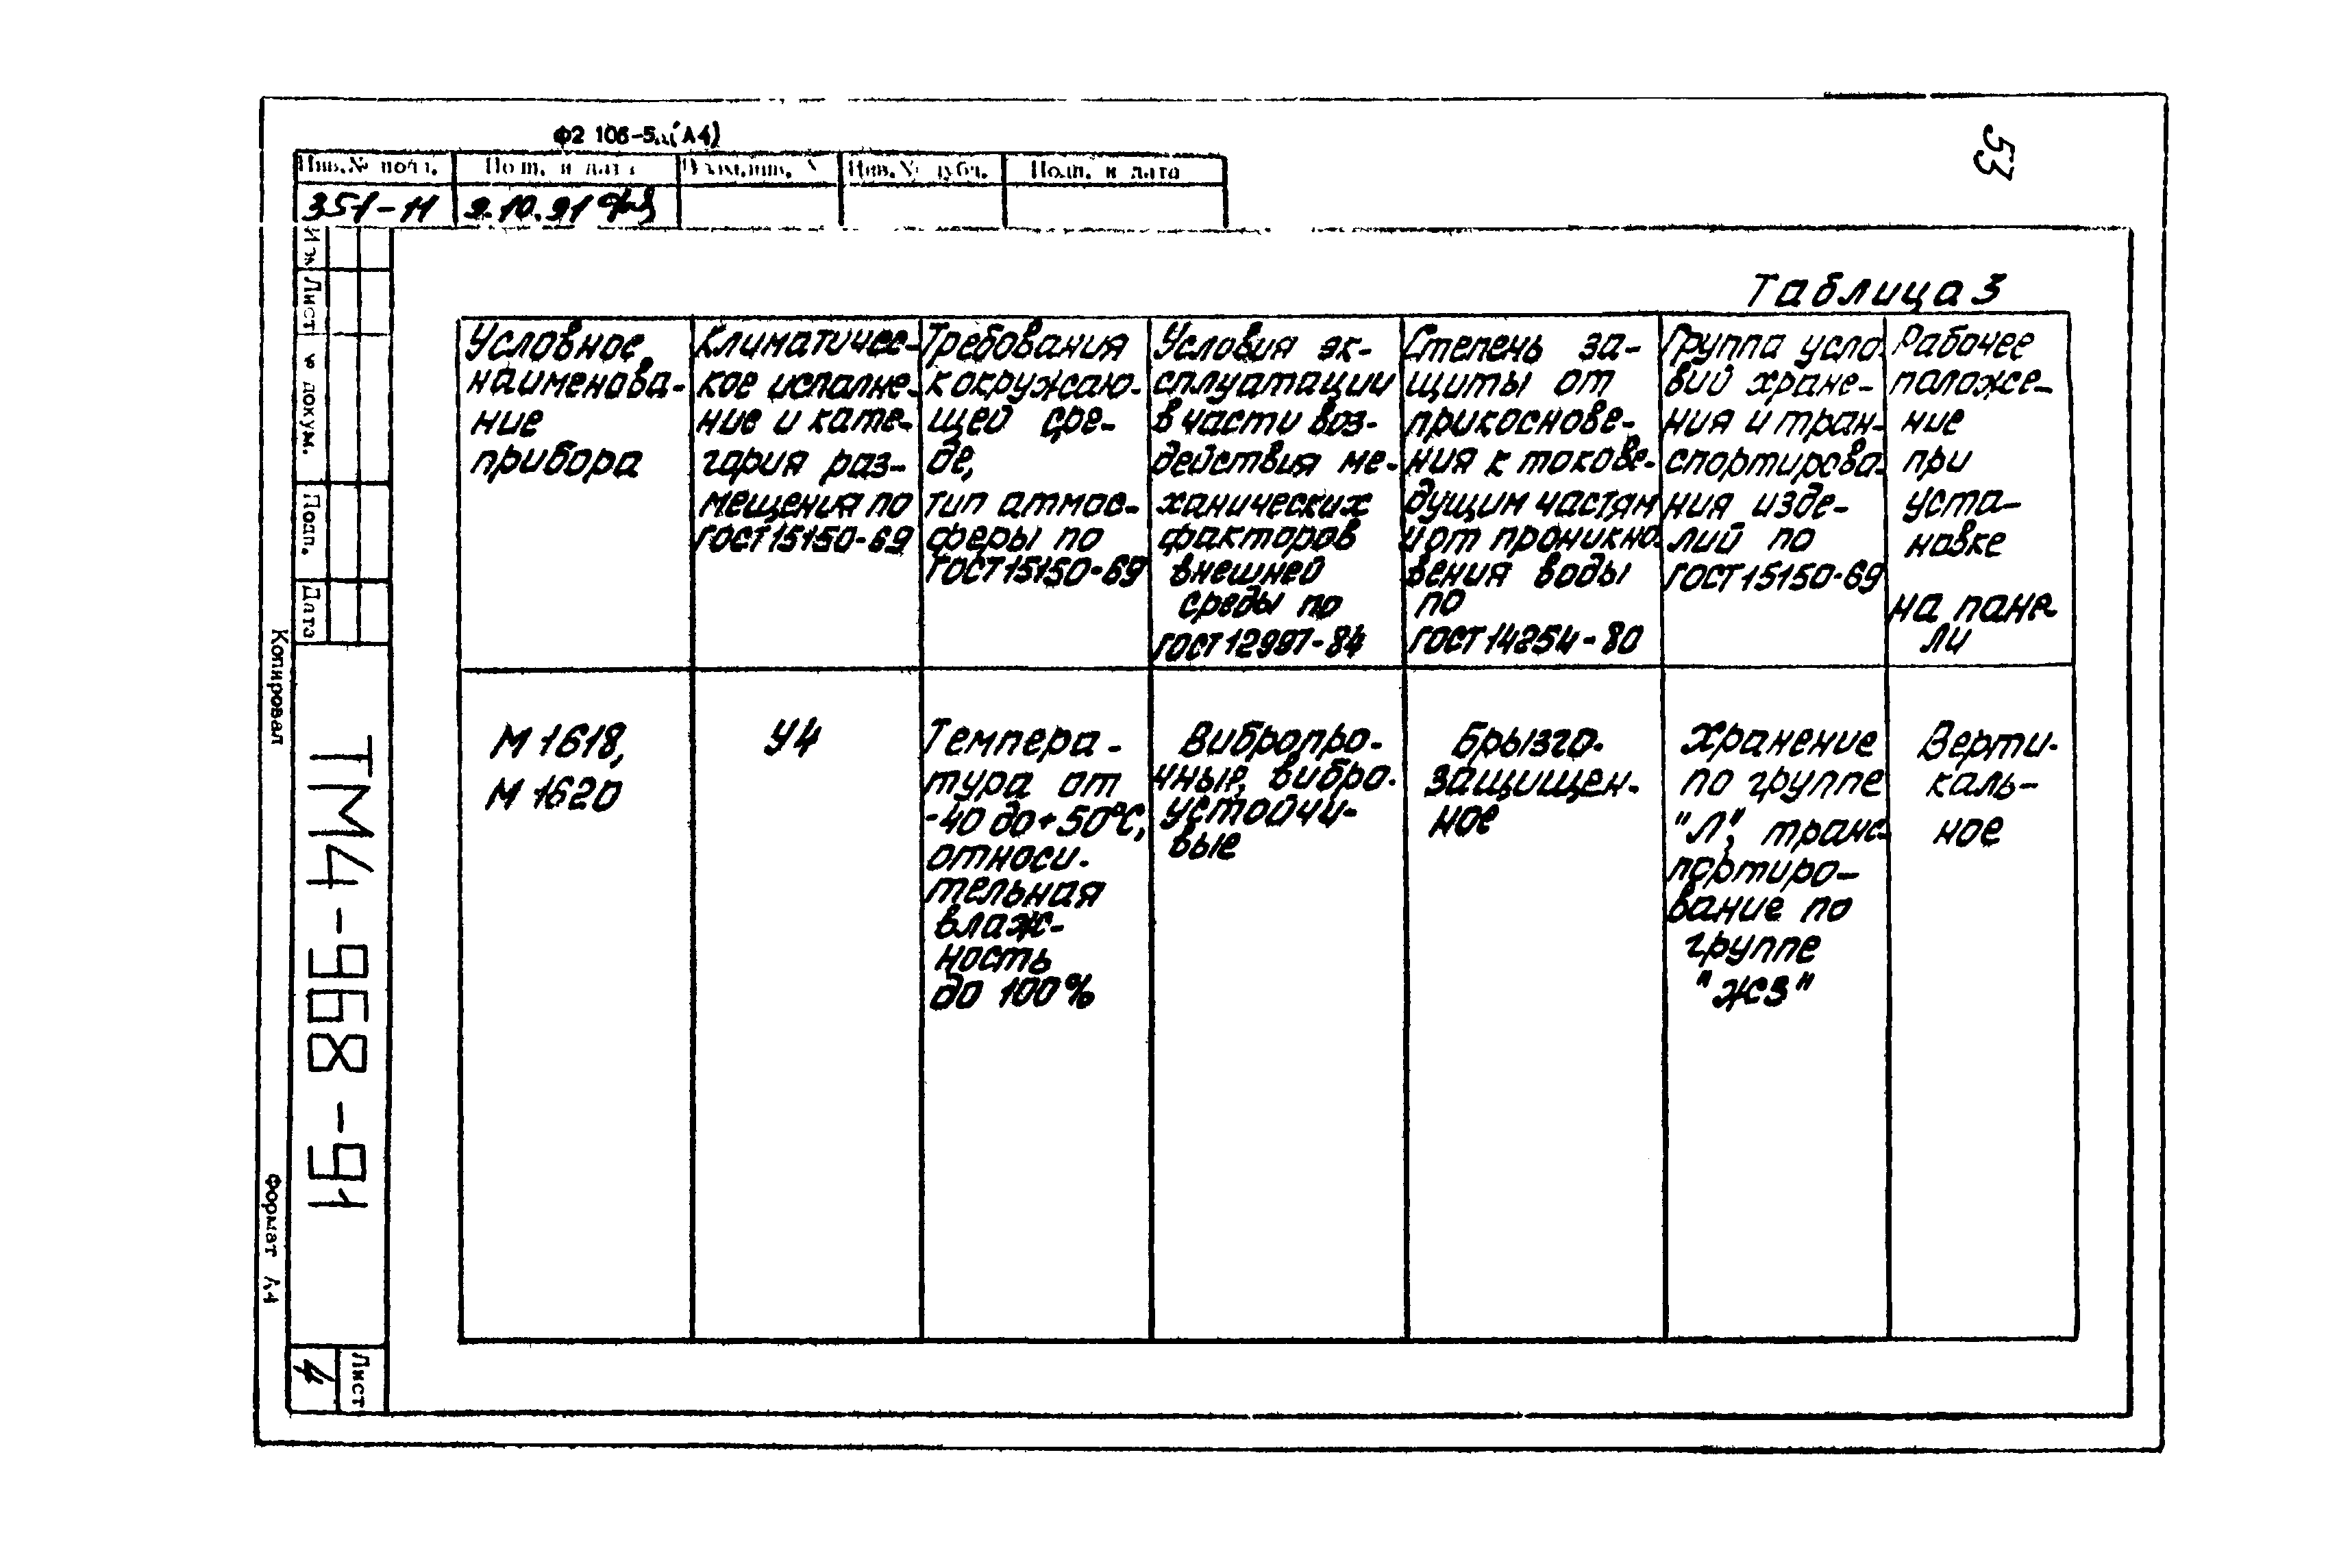 53
Инв.№ подл.
Подп. и дата
Взам.инв. №
Инв.№ дубл.
Подп. и дата
351-11
9.10.91
Изм
Лист
№ докум.
Подп.
Дата
Копировал
ТМ4-968-91
Формат А4
Лист
4
Таблица 3
Условное
наименова-
ние
прибора
Климатичес-
кое исполне-
ние и кате-
гория раз-
мещения по
ГОСТ 15150-69
Требования
к окружаю-
щей сре-
де,
тип атмос-
феры по
ГОСТ 15150-69
Условия эк-
сплуатации
в части воз-
действия ме-
ханических
факторов
внешней
среды по
ГОСТ 12997-84
Степень за-
щиты от
прикоснове-
ния к токове-
дущим частям
и от проникно-
вения воды
по
ГОСТ 14254-80
Группа усло-
вий хране-
ния и тран-
спортирова-
ния изде-
лий по
ГОСТ 15150-69
Рабочее
положе-
ние
при
уста-
новке
на пане-
ли
М 1618,
М 1620
У4
Темпера-
тура от
-40 до +50°С,
относи-
тельная
влаж-
ность
до 100%
Вибропро-
чные, вибро-
устойчи-
вые
Брызго-
защищен-
ное
Хранение
по группе
"Л", транс-
портиро-
вание по
группе
"Ж3"
Верти-
каль-
ное